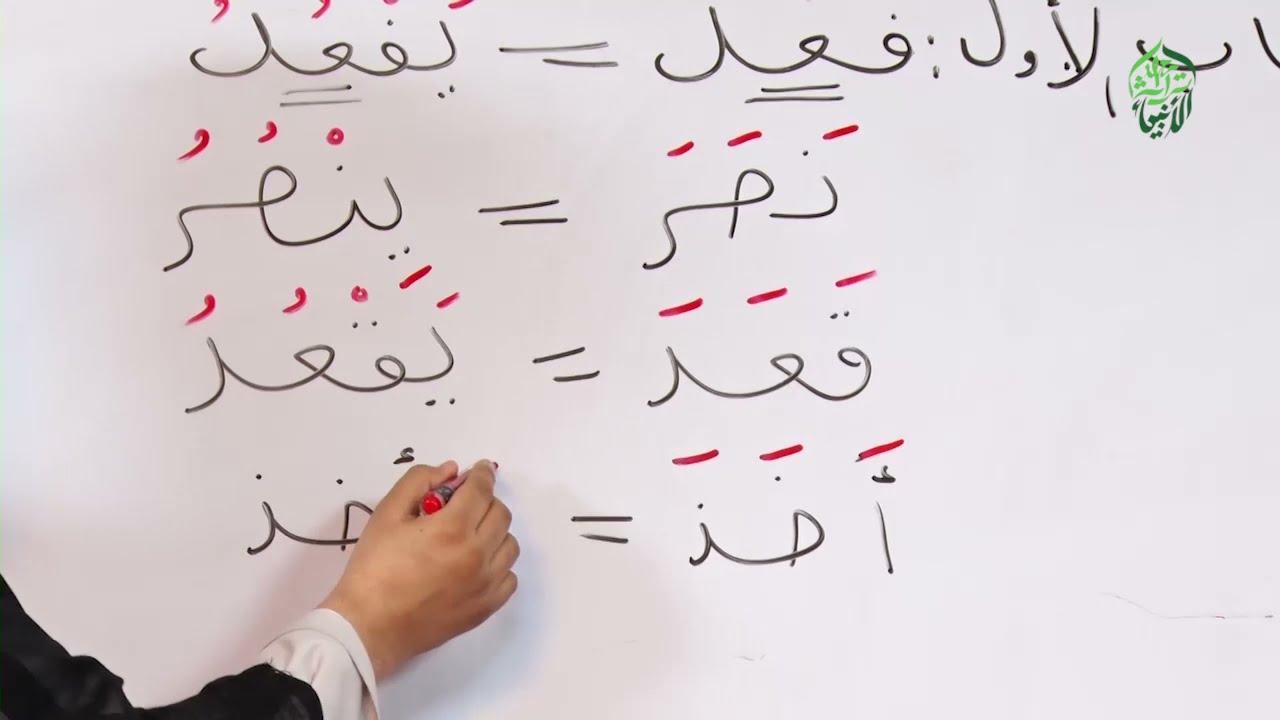 اب الأول: فعل = يَفْعُلُ
نَصَرَ = ينْصُرُ
قَعَدَ = يَقْعُدُ
أَخَذَ =